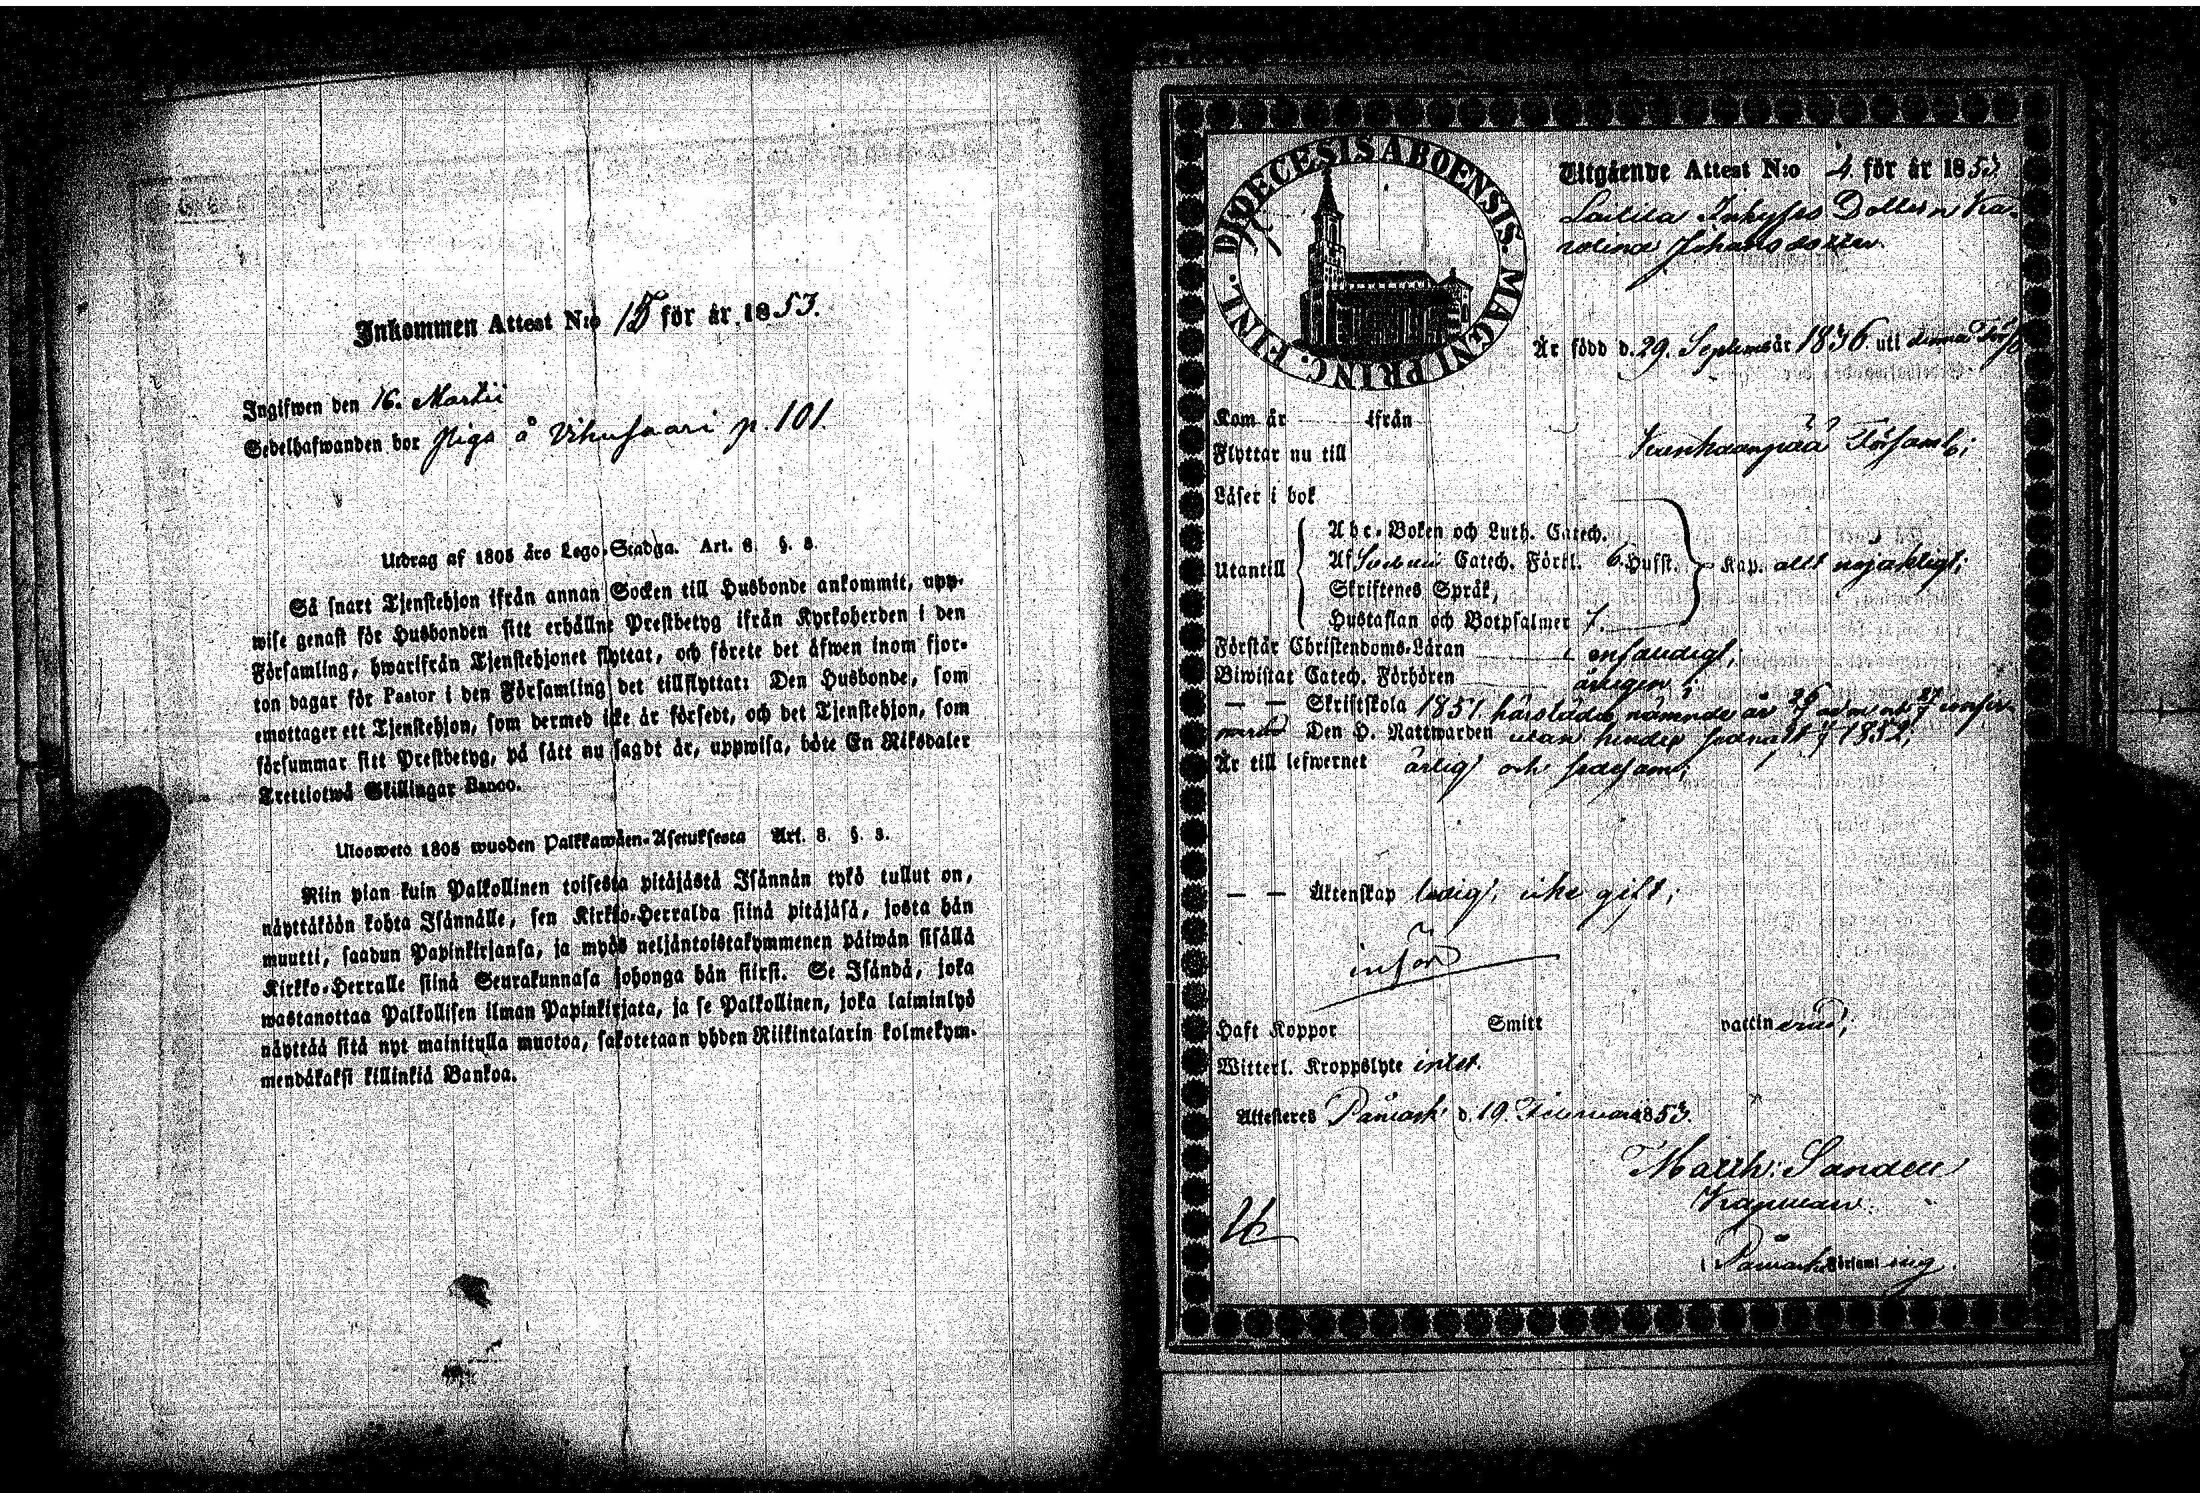 Inkommen Attest N:o 15 för år 1853.
Ingifwen den 16. Martii
Sedelhafwanden bor Piga å Vihusaari p. 101.
Utdrag af 1805 års Lego-Stadga. Art. 8. §. 3.
Så snart Tjenstehjon ifrån annan Socken till Husbonde ankommit, upp-
wise genast för Husbonden sitt erhållne Prestbetyg ifrån Kyrkoherden i den
Församling, hwarifrån Tjenstehjonet flyttat, och förete det äfwen inom fjor-
ton dagar för Pastor i den Församling det tillflyttat: Den Husbonde, som
emottager ett Tjenstehjon, som dermed icke är försedt, och det Tjenstehjon, som
försummar sitt Prestbetyg, på sätt nu sagdt är, uppwisa, böte En Riksdaler
Trettiotwå Skillingar Banco.
Ulosweto 1805 wuoden Palkkawäen-Asetuksesta Art. 8. §. 3.
Niin pian kuin Palkollinen toisesta pitäjästä Isännän tykö tullut on,
näyttäköön kohta Isännälle, sen Kirkko-Herralda siinä pitäjäsä, josta hän
muutti, saadun Papinkirjansa, ja myös neljäntoistakymmenen päiwän sisällä
Kirkko-Herralle siinä Seurakunnasa johonga hän siirsi. Se Isändä, joka
wastanottaa Palkollisen ilman Papinkirjata, ja se Palkollinen, joka laiminlyö
näyttää sitä nyt mainitulla muotoa, sakotetaan yhden Riikintalarin kolmekym-
mendäkaksi killinkiä Bankoa.
DIOECESIS ABOENSIS. MAGNI PRINC. FINL.
Utgående Attest N:o 4 för år 1853
Laitila Inhyses Dottern Ka-
rolina Johansdotter
Är född d. 29. Septembr år 1836. uti denna Förs
Kom år ifrån
Flyttar nu till Kankaanpää Församl;
Läser i bok
Abc-Boken och Luth. Catech.
Utantill Af Svebelii Catech. Förkl. 6. Hufst. Kap. allt nöjaktigt;
Skriftenes Språk,
Hustaflan och Botpsalmer 7.
Förstår Christendoms-Läran enfaldigt;
Biwistat Catech. Förhören årligen;
— — Skriftskola 1851 härstädes nämnde år
Den H. Nattwarden 1852;
Är till lefwernet ärligt och sedesam;
— — Äktenskap ledig, icke gift;
inför
Haft Koppor Smitt vaccinerad;
Witterl. Kroppslyte intet.
Attesteres Påmark d. 19. Februarii 1853.
Matth: Sandell
Kapellan
i Påmarks Församling.